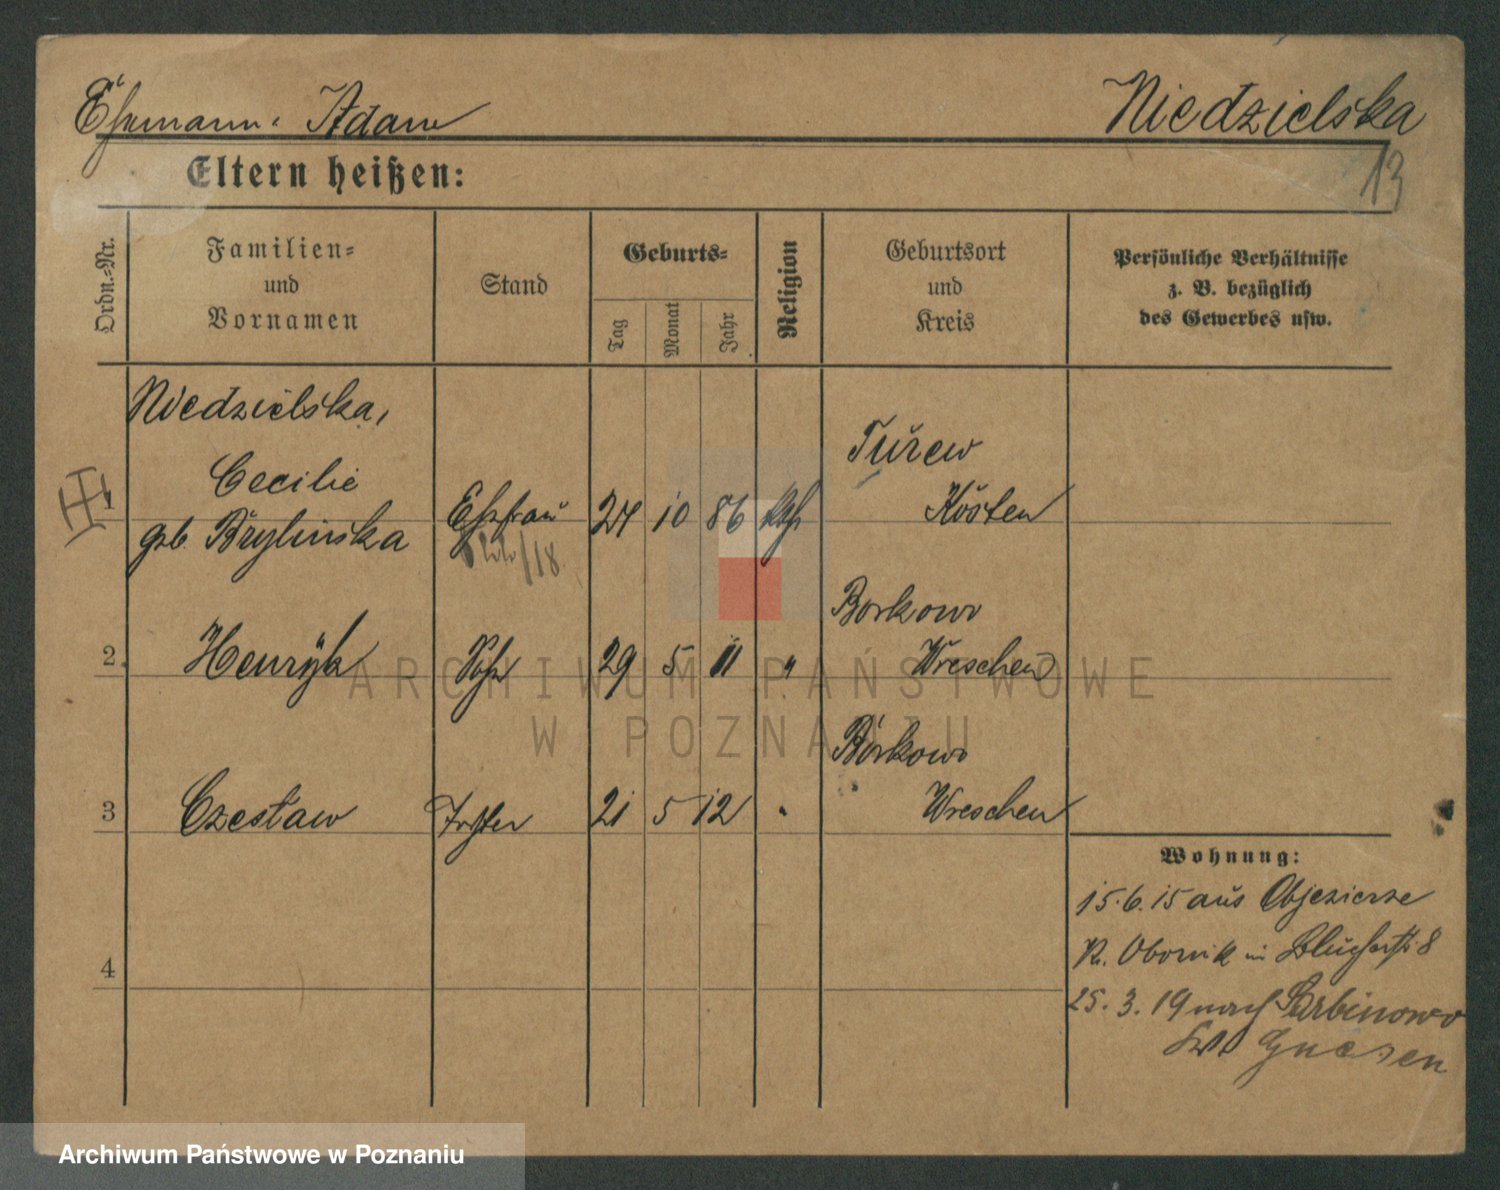 Ehemann: Adam
Niedzielska
13
Eltern heißen:
Ordn.-Nr.
Familien-
und
Vornamen
Stand
Geburts-
Tag
Monat
Jahr
Religion
Geburtsort
und
Kreis
Persönliche Verhältnisse
z. B. bezüglich
des Gewerbes usw.
Niedzielska,
Cecilie
geb. Brylinska
1
Ehefrau
24 10 86 kth
Turew
Kosten
/18
2. Henryk Sohn 29 5 11 "
Borkowo
Wreschen
3 Czesław Tochter 21 5 12 "
Borkowo
Wreschen
4
Wohnung:
15.6.15 aus Objezierze
K. Obornik in 8
25.3.19 nach Sarbinowo
Gnesen
ARCHIWUM PAŃSTWOWE
W POZNANIU
Archiwum Państwowe w Poznaniu